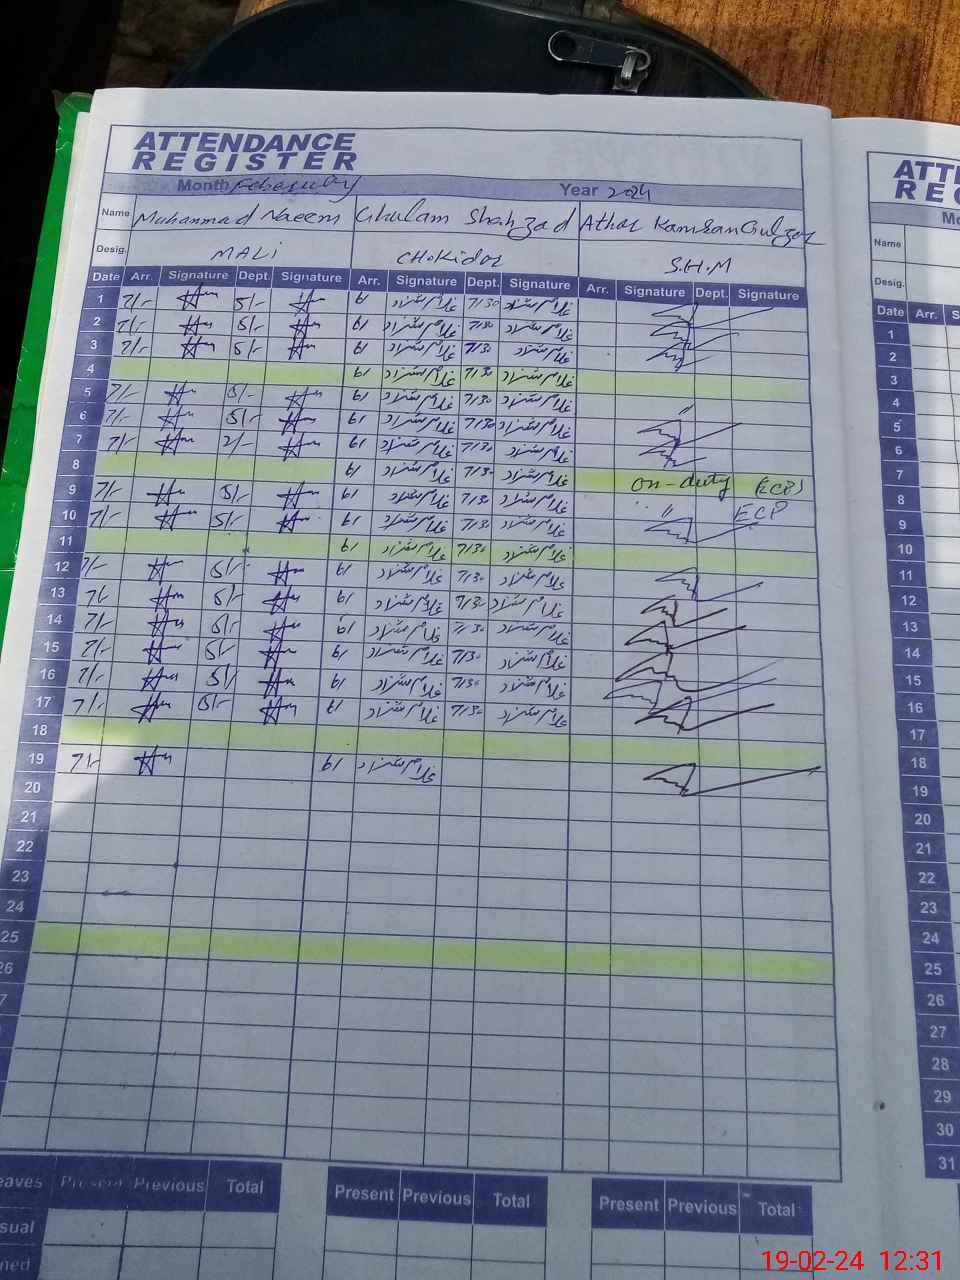 ATTENDANCE
REGISTER
Month February Year 2024
Name Muhammad Naeem Ghulam Shahzad Athar Kamran Gulzar
Desig. MALi CHoKidar S.H.M
Date Arr. Signature Dept. Signature Arr. Signature Dept. Signature Arr. Signature Dept. Signature
1 7/- 5/- 19 غلام شہزاد 7/30 غلام شہزاد
2 7/- 5/- 19 غلام شہزاد 7/30 غلام شہزاد
3 7/- 5/- 19 غلام شہزاد 7/30 غلام شہزاد
4 19 غلام شہزاد 7/30 غلام شہزاد
5 7/- 5/- 19 غلام شہزاد 7/30 غلام شہزاد "
6 7/- 5/- 19 غلام شہزاد 7/30 غلام شہزاد
7 7/- 2/- 19 غلام شہزاد 7/30 غلام شہزاد
8 19 غلام شہزاد 7/30 غلام شہزاد on-duty (ECP)
9 7/- 5/- 19 غلام شہزاد 7/30 غلام شہزاد " ECP
10 7/- 5/- 19 غلام شہزاد 7/30 غلام شہزاد
11 19 غلام شہزاد 7/30 غلام شہزاد
12 7/- 5/- 19 غلام شہزاد 7/30 غلام شہزاد
13 7/- 5/- 19 غلام شہزاد 7/30 غلام شہزاد
14 7/- 5/- 19 غلام شہزاد 7/30 غلام شہزاد
15 7/- 5/- 19 غلام شہزاد 7/30 غلام شہزاد
16 7/- 5/- 19 غلام شہزاد 7/30 غلام شہزاد
17 7/- 5/- 19 غلام شہزاد 7/30 غلام شہزاد
18
19 7/- 19 غلام شہزاد
20
21
22
23
24
25
26
7
eaves Present Previous Total Present Previous Total Present Previous Total
sual
ned
ATT
REG
Mo
Name
Desig.
Date Arr. S
1
2
3
4
5
6
7
8
9
10
11
12
13
14
15
16
17
18
19
20
21
22
23
24
25
26
27
28
29
30
31
19-02-24 12:31